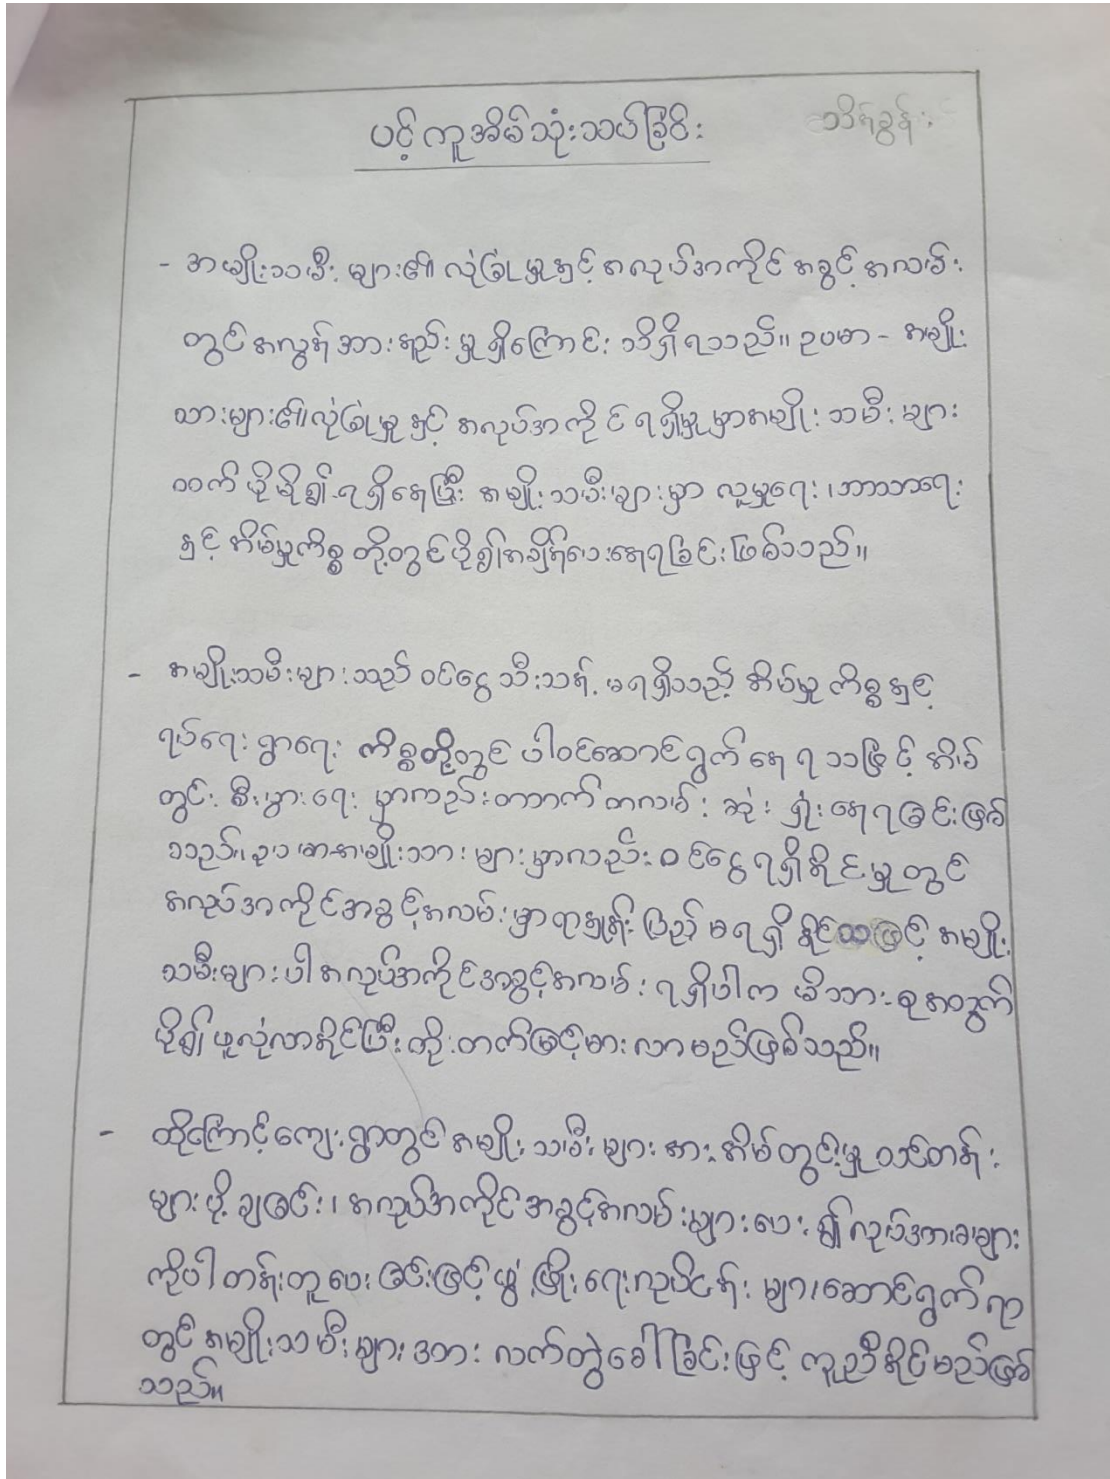 ပင့်ကူအိမ်သုံးသပ်ခြင်း
သိန်းခွန်း
- အမျိုးသမီးများ၏ လုံခြုံမှုနှင့် အလုပ်အကိုင် အခွင့်အလမ်း
တွင် အလွန်အားနည်းမှုရှိကြောင်း သိရှိရသည်။ ဥပမာ - အမျိုး
သားများ၏လုံခြုံမှုနှင့် အလုပ်အကိုင် ရရှိမှုမှာအမျိုးသမီးများ
ထက် ပိုမို၍ ရရှိနေပြီး အမျိုးသမီးများမှာ လူမှုရေး၊ဘာသာရေး
နှင့် အိမ်မှုကိစ္စတို့တွင်ပို၍အချိန်ပေးနေရခြင်းဖြစ်သည်။
- အမျိုးသမီးများသည် ဝင်ငွေသီးသန့်မရရှိသည့် အိမ်မှုကိစ္စနှင့်
ရပ်ရေးရွာရေး ကိစ္စတို့တွင် ပါဝင်ဆောင်ရွက်နေရသဖြင့် အိမ်
တွင်းစီးပွားရေးမှာလည်းတဘက်တလမ်းဆုံးရှုံးနေရခြင်းဖြစ်
သည်။ဥပမာ-အမျိုးသားများမှာလည်းဝင်ငွေရရှိနိုင်မှုတွင်
အလုပ်အကိုင်အခွင့်အလမ်းမှာရာနှုန်းပြည့်မရရှိနိုင်သဖြင့် အမျိုး
သမီးများပါအလုပ်အကိုင်အခွင့်အလမ်းရရှိပါက မိသားစုအတွက်
ပို၍ဖူလုံလာနိုင်ပြီးတိုးတက်မြင့်မားလာမည်ဖြစ်သည်။
- ထို့ကြောင့်ကျေးရွာတွင်အမျိုးသမီးများအားအိမ်တွင်းမှုသင်တန်း
များပို့ချခြင်း၊ အလုပ်အကိုင်အခွင့်အလမ်းများပေး၍လုပ်အားခများ
ကိုပါတန်းတူပေးခြင်းဖြင့်ဖွံ့ဖြိုးရေးလုပ်ငန်းများဆောင်ရွက်ရာ
တွင်အမျိုးသမီးများအား လက်တွဲခေါ်ခြင်းဖြင့် ကူညီနိုင်မည်ဖြစ်
သည်။